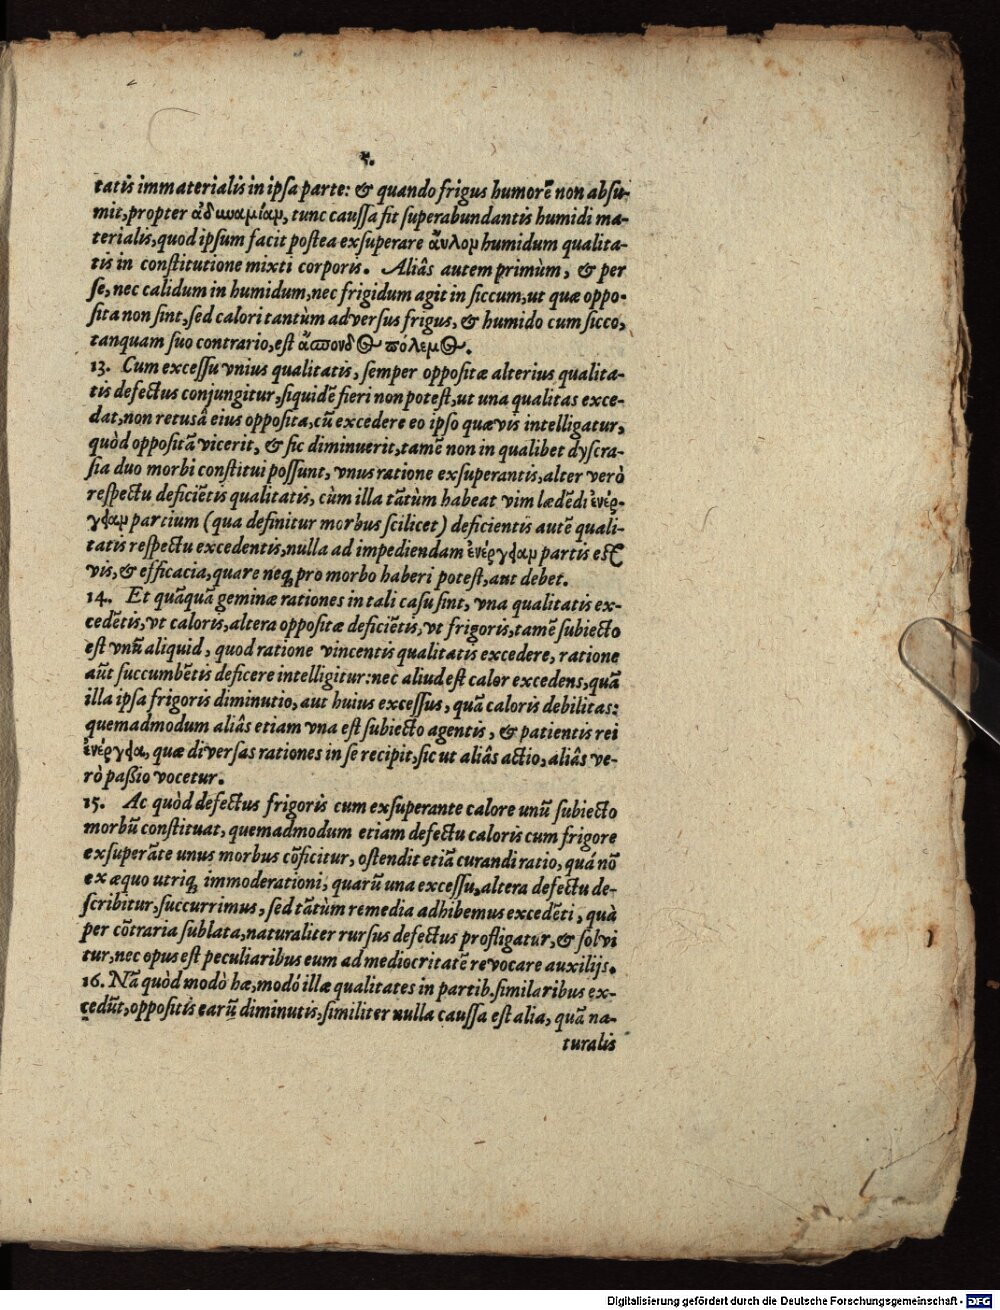 5.
tatis immaterialis in ipsa parte: & quando frigus humorẽ non absu-
mit, propter ἀδυναμίαν, tunc caussa fit superabundantis humidi ma-
terialis, quod ipsum facit postea exsuperare ἄυλον humidum qualita-
tis in constitutione mixti corporis. Aliâs autem primùm, & per
se, nec calidum in humidum, nec frigidum agit in siccum, ut quæ oppo-
sita non sint, sed calori tantùm adversus frigus, & humido cum sicco,
tanquam suo contrario, est ἄσπονδος πόλεμος.
13. Cum excessu vnius qualitatis, semper oppositæ alterius qualita-
tis defectus conjungitur, siquidẽ fieri non potest, ut una qualitas exce-
dat, non retusâ eius opposita, cũ excedere eo ipso quævis intelligatur,
quòd oppositã vicerit, & sic diminuerit, tamẽ non in qualibet dyscra-
sia duo morbi constitui possunt, vnus ratione exsuperantis, alter verò
respectu deficiẽtis qualitatis, cùm illa tãtùm habeat vim lædẽdi ἐνέρ-
γειαν partium (qua definitur morbus scilicet) deficientis autẽ quali-
tatis respectu excedentis, nulla ad impediendam ἐνέργειαν partis est
vis, & efficacia, quare neq; pro morbo haberi potest, aut debet.
14. Et quãquã geminæ rationes in tali casu sint, vna qualitatis ex-
cedẽtis, vt caloris, altera oppositæ deficiẽtis, vt frigoris, tamẽ subiecto
est vnũ aliquid, quod ratione vincentis qualitatis excedere, ratione
aũt succumbẽtis deficere intelligitur: nec aliud est calor excedens, quã
illa ipsa frigoris diminutio, aut huius excessus, quã caloris debilitas:
quemadmodum aliâs etiam vna est subiecto agentis, & patientis rei
ἐνέργεια, quæ diversas rationes in se recipit, sic ut aliâs actio, aliâs ve-
rò passio vocetur.
15. Ac quòd defectus frigoris cum exsuperante calore unũ subiecto
morbũ constituat, quemadmodum etiam defectu caloris cum frigore
exsuperãte unus morbus cõficitur, ostendit etiã curandi ratio, quá nõ
ex æquo utriq; immoderationi, quarũ una excessu, altera defectu de-
scribitur, succurrimus, sed tãtùm remedia adhibemus excedẽti, quà
per cõtraria sublata, naturaliter rursus defectus profligatur, & solvi
tur, nec opus est peculiaribus eum ad mediocritatẽ revocare auxilijs.
16. Nã quòd modò hæ, modó illæ qualitates in partib. similaribus ex-
cedũt, oppositis earũ diminutis, similiter nulla caussa est alia, quã na-
turalis
Digitalisierung gefördert durch die Deutsche Forschungsgemeinschaft - DFG